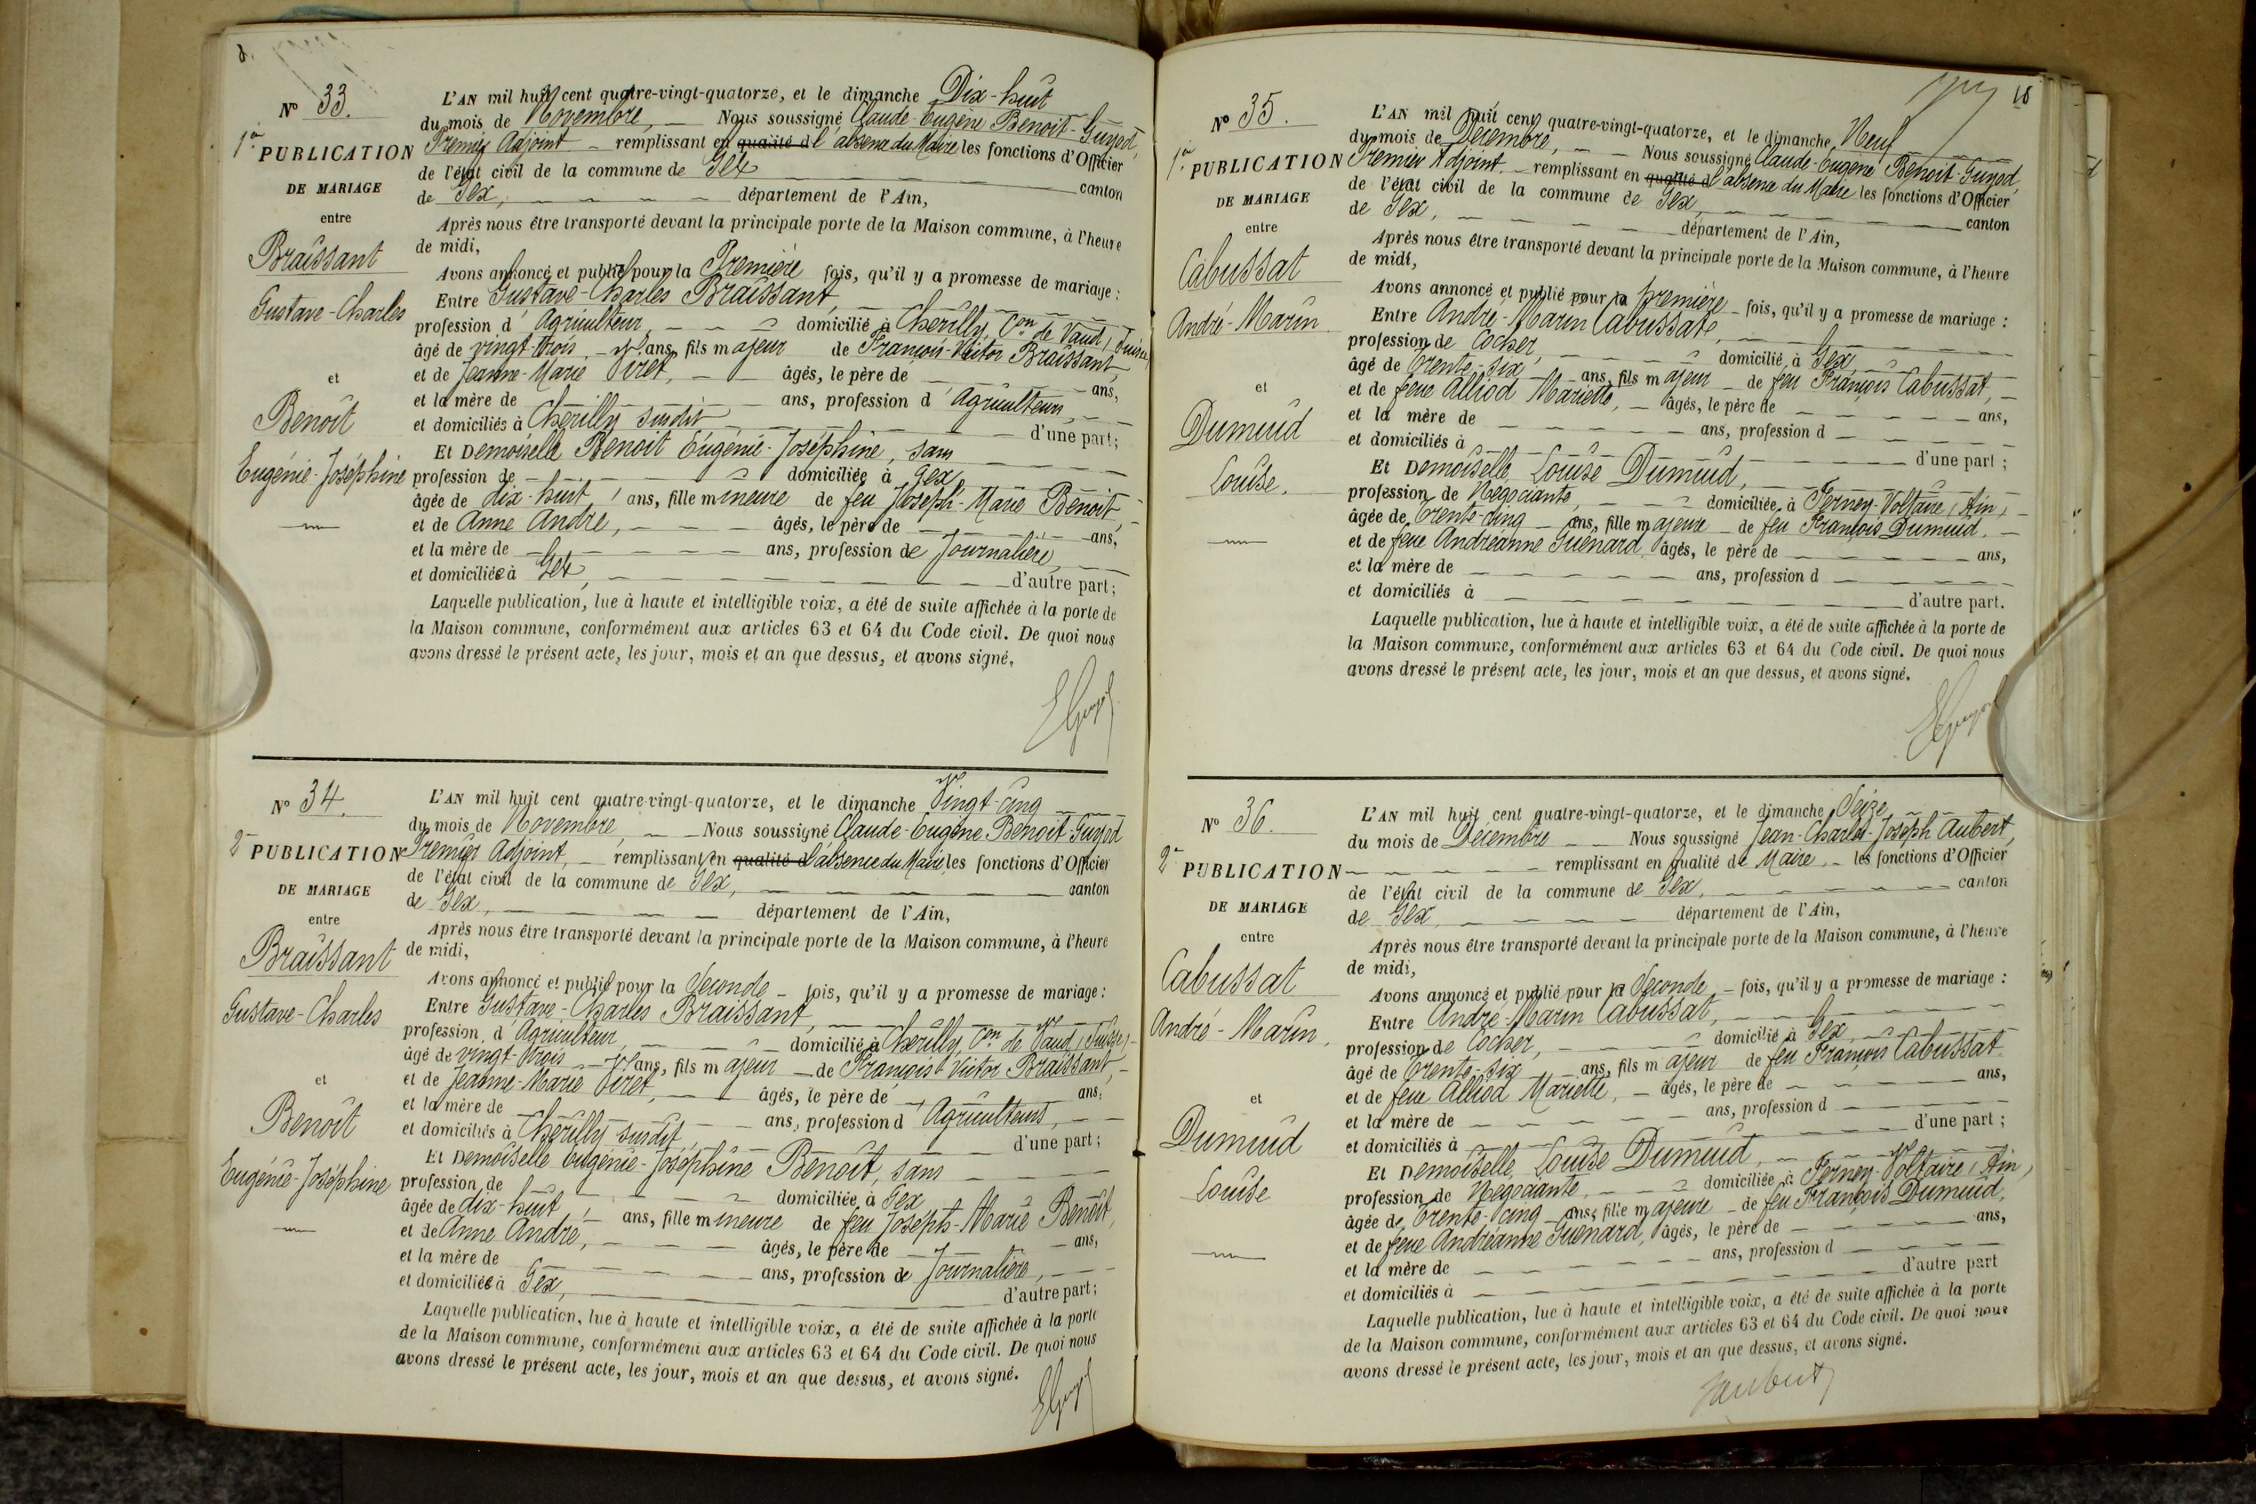 N° 33.
1re PUBLICATION
DE MARIAGE
entre
Braissant
Gustave-Charles
et
Benoît
Eugénie-Joséphine
L'AN mil huit cent quatre-vingt-quatorze, et le dimanche Dix-huit
du mois de Novembre, Nous soussigné Claude-Eugène Benoit-Guyod,
Premier Adjoint remplissant en qualité d l'absence du Maire les fonctions d'Officier
de l'état civil de la commune de Gex canton
de Gex, département de l'Ain,
Après nous être transporté devant la principale porte de la Maison commune, à l'heure
de midi,
Avons annoncé et publié pour la Première fois, qu'il y a promesse de mariage :
Entre Gustave-Charles Braissant,
profession d'Agriculteur, domicilié à Chérilly, Con de Vaud, Suisse,
âgé de vingt-trois ans, fils majeur de François-Victor Braissant,
et de Jeanne-Marie Piret, âgés, le père de ans,
et la mère de ans, profession d'Agriculteurs,
et domiciliés à Chérilly susdit d'une part;
Et Demoiselle Benoit Eugénie-Joséphine, sans
profession de domiciliée à Gex,
âgée de dix-huit ans, fille mineure de feu Joseph-Marie Benoit,
et de Anne André, âgés, le père de ans,
et la mère de ans, profession de Journalière,
et domiciliée à Gex, d'autre part;
Laquelle publication, lue à haute et intelligible voix, a été de suite affichée à la porte de
la Maison commune, conformément aux articles 63 et 64 du Code civil. De quoi nous
avons dressé le présent acte, les jour, mois et an que dessus, et avons signé.
N° 34.
2e PUBLICATION
DE MARIAGE
entre
Braissant
Gustave-Charles
et
Benoît
Eugénie-Joséphine
L'AN mil huit cent quatre-vingt-quatorze, et le dimanche Vingt-cinq
du mois de Novembre Nous soussigné Claude-Eugène Benoit-Guyod
Premier Adjoint, remplissant en qualité d l'absence du Maire les fonctions d'Officier
de l'état civil de la commune de Gex, canton
de Gex, département de l'Ain,
Après nous être transporté devant la principale porte de la Maison commune, à l'heure
de midi,
Avons annoncé et publié pour la Seconde fois, qu'il y a promesse de mariage :
Entre Gustave-Charles Braissant,
profession d'Agriculteur, domicilié à Chérilly, Con de Vaud (Suisse)
âgé de vingt-trois ans, fils majeur de François-Victor Braissant,
et de Jeanne-Marie Piret, âgés, le père de ans,
et la mère de ans, profession d'Agriculteurs,
et domiciliés à Chérilly susdit, d'une part;
Et Demoiselle Eugénie-Joséphine Benoît, sans
profession de domiciliée à Gex
âgée de dix-huit ans, fille mineure de feu Joseph-Marie Benoît,
et de Anne André, âgés, le père de ans,
et la mère de ans, profession de Journalière,
et domiciliée à Gex, d'autre part;
Laquelle publication, lue à haute et intelligible voix, a été de suite affichée à la porte
de la Maison commune, conformément aux articles 63 et 64 du Code civil. De quoi nous
avons dressé le présent acte, les jour, mois et an que dessus, et avons signé.
18
N° 35.
1re PUBLICATION
DE MARIAGE
entre
Cabussat
André-Marin
et
Dumuid
Louise.
L'AN mil huit cent quatre-vingt-quatorze, et le dimanche Neuf
du mois de Décembre, Nous soussigné Claude-Eugène Benoit-Guyod,
Premier Adjoint, remplissant en qualité d l'absence du Maire les fonctions d'Officier
de l'état civil de la commune de Gex, canton
de Gex, département de l'Ain,
Après nous être transporté devant la principale porte de la Maison commune, à l'heure
de midi,
Avons annoncé et publié pour la première fois, qu'il y a promesse de mariage :
Entre André-Marin Cabussat,
profession de Cocher, domicilié à Gex
âgé de Trente-six ans, fils majeur de feu François Cabussat,
et de feue Alliod Mariette, âgés, le père de ans,
et la mère de ans, profession d
et domiciliés à d'une part ;
Et Demoiselle Louise Dumuid,
profession de Négociante, domiciliée à Ferney-Voltaire (Ain)
âgée de Trente-cinq ans, fille majeure de feu François Dumuid,
et de feue Andréanne Guenard, âgés, le père de ans,
et la mère de ans, profession d
et domiciliés à d'autre part.
Laquelle publication, lue à haute et intelligible voix, a été de suite affichée à la porte de
la Maison commune, conformément aux articles 63 et 64 du Code civil. De quoi nous
avons dressé le présent acte, les jour, mois et an que dessus, et avons signé.
N° 36.
2e PUBLICATION
DE MARIAGE
entre
Cabussat
André-Marin,
et
Dumuid
Louise
L'AN mil huit cent quatre-vingt-quatorze, et le dimanche Seize
du mois de Décembre Nous soussigné Jean-Charles-Joseph Aubert,
remplissant en qualité de Maire, les fonctions d'Officier
de l'état civil de la commune de Gex, canton
de Gex, département de l'Ain,
Après nous être transporté devant la principale porte de la Maison commune, à l'heure
de midi,
Avons annoncé et publié pour la Seconde fois, qu'il y a promesse de mariage :
Entre André-Marin Cabussat,
profession de Cocher, domicilié à Gex,
âgé de Trente-six ans, fils majeur de feu François Cabussat
et de feue Alliod Mariette, âgés, le père de ans,
et la mère de ans, profession d
et domiciliés à d'une part ;
Et Demoiselle Louise Dumuid,
profession de Négociante, domiciliée à Ferney-Voltaire (Ain)
âgée de Trente-cinq ans, fille majeure de feu François Dumuid,
et de feue Andréanne Guenard, âgés, le père de ans,
et la mère de ans, profession d
et domiciliés à d'autre part
Laquelle publication, lue à haute et intelligible voix, a été de suite affichée à la porte
de la Maison commune, conformément aux articles 63 et 64 du Code civil. De quoi nous
avons dressé le présent acte, les jour, mois et an que dessus, et avons signé.
JAubert